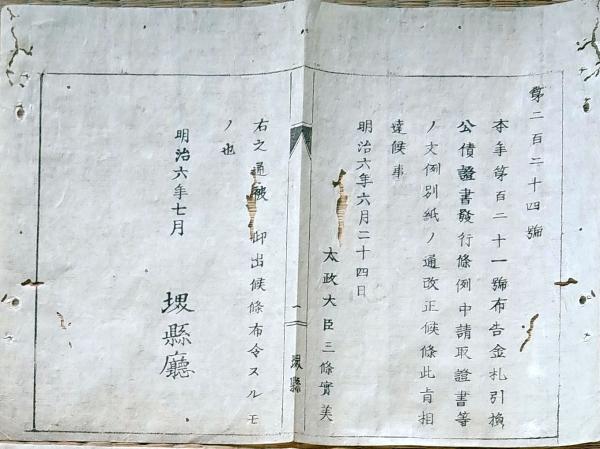 第二百二十四號
本年第百二十一號布告金札引換
公債證書發行條例中請取證書等
ノ文例別紙ノ通改正候條此旨相
達候事
明治六年六月二十四日
太政大臣三條實美
一
堺縣
右之通被 仰出候條布令スルモ
ノ也
明治六年七月
堺縣廳